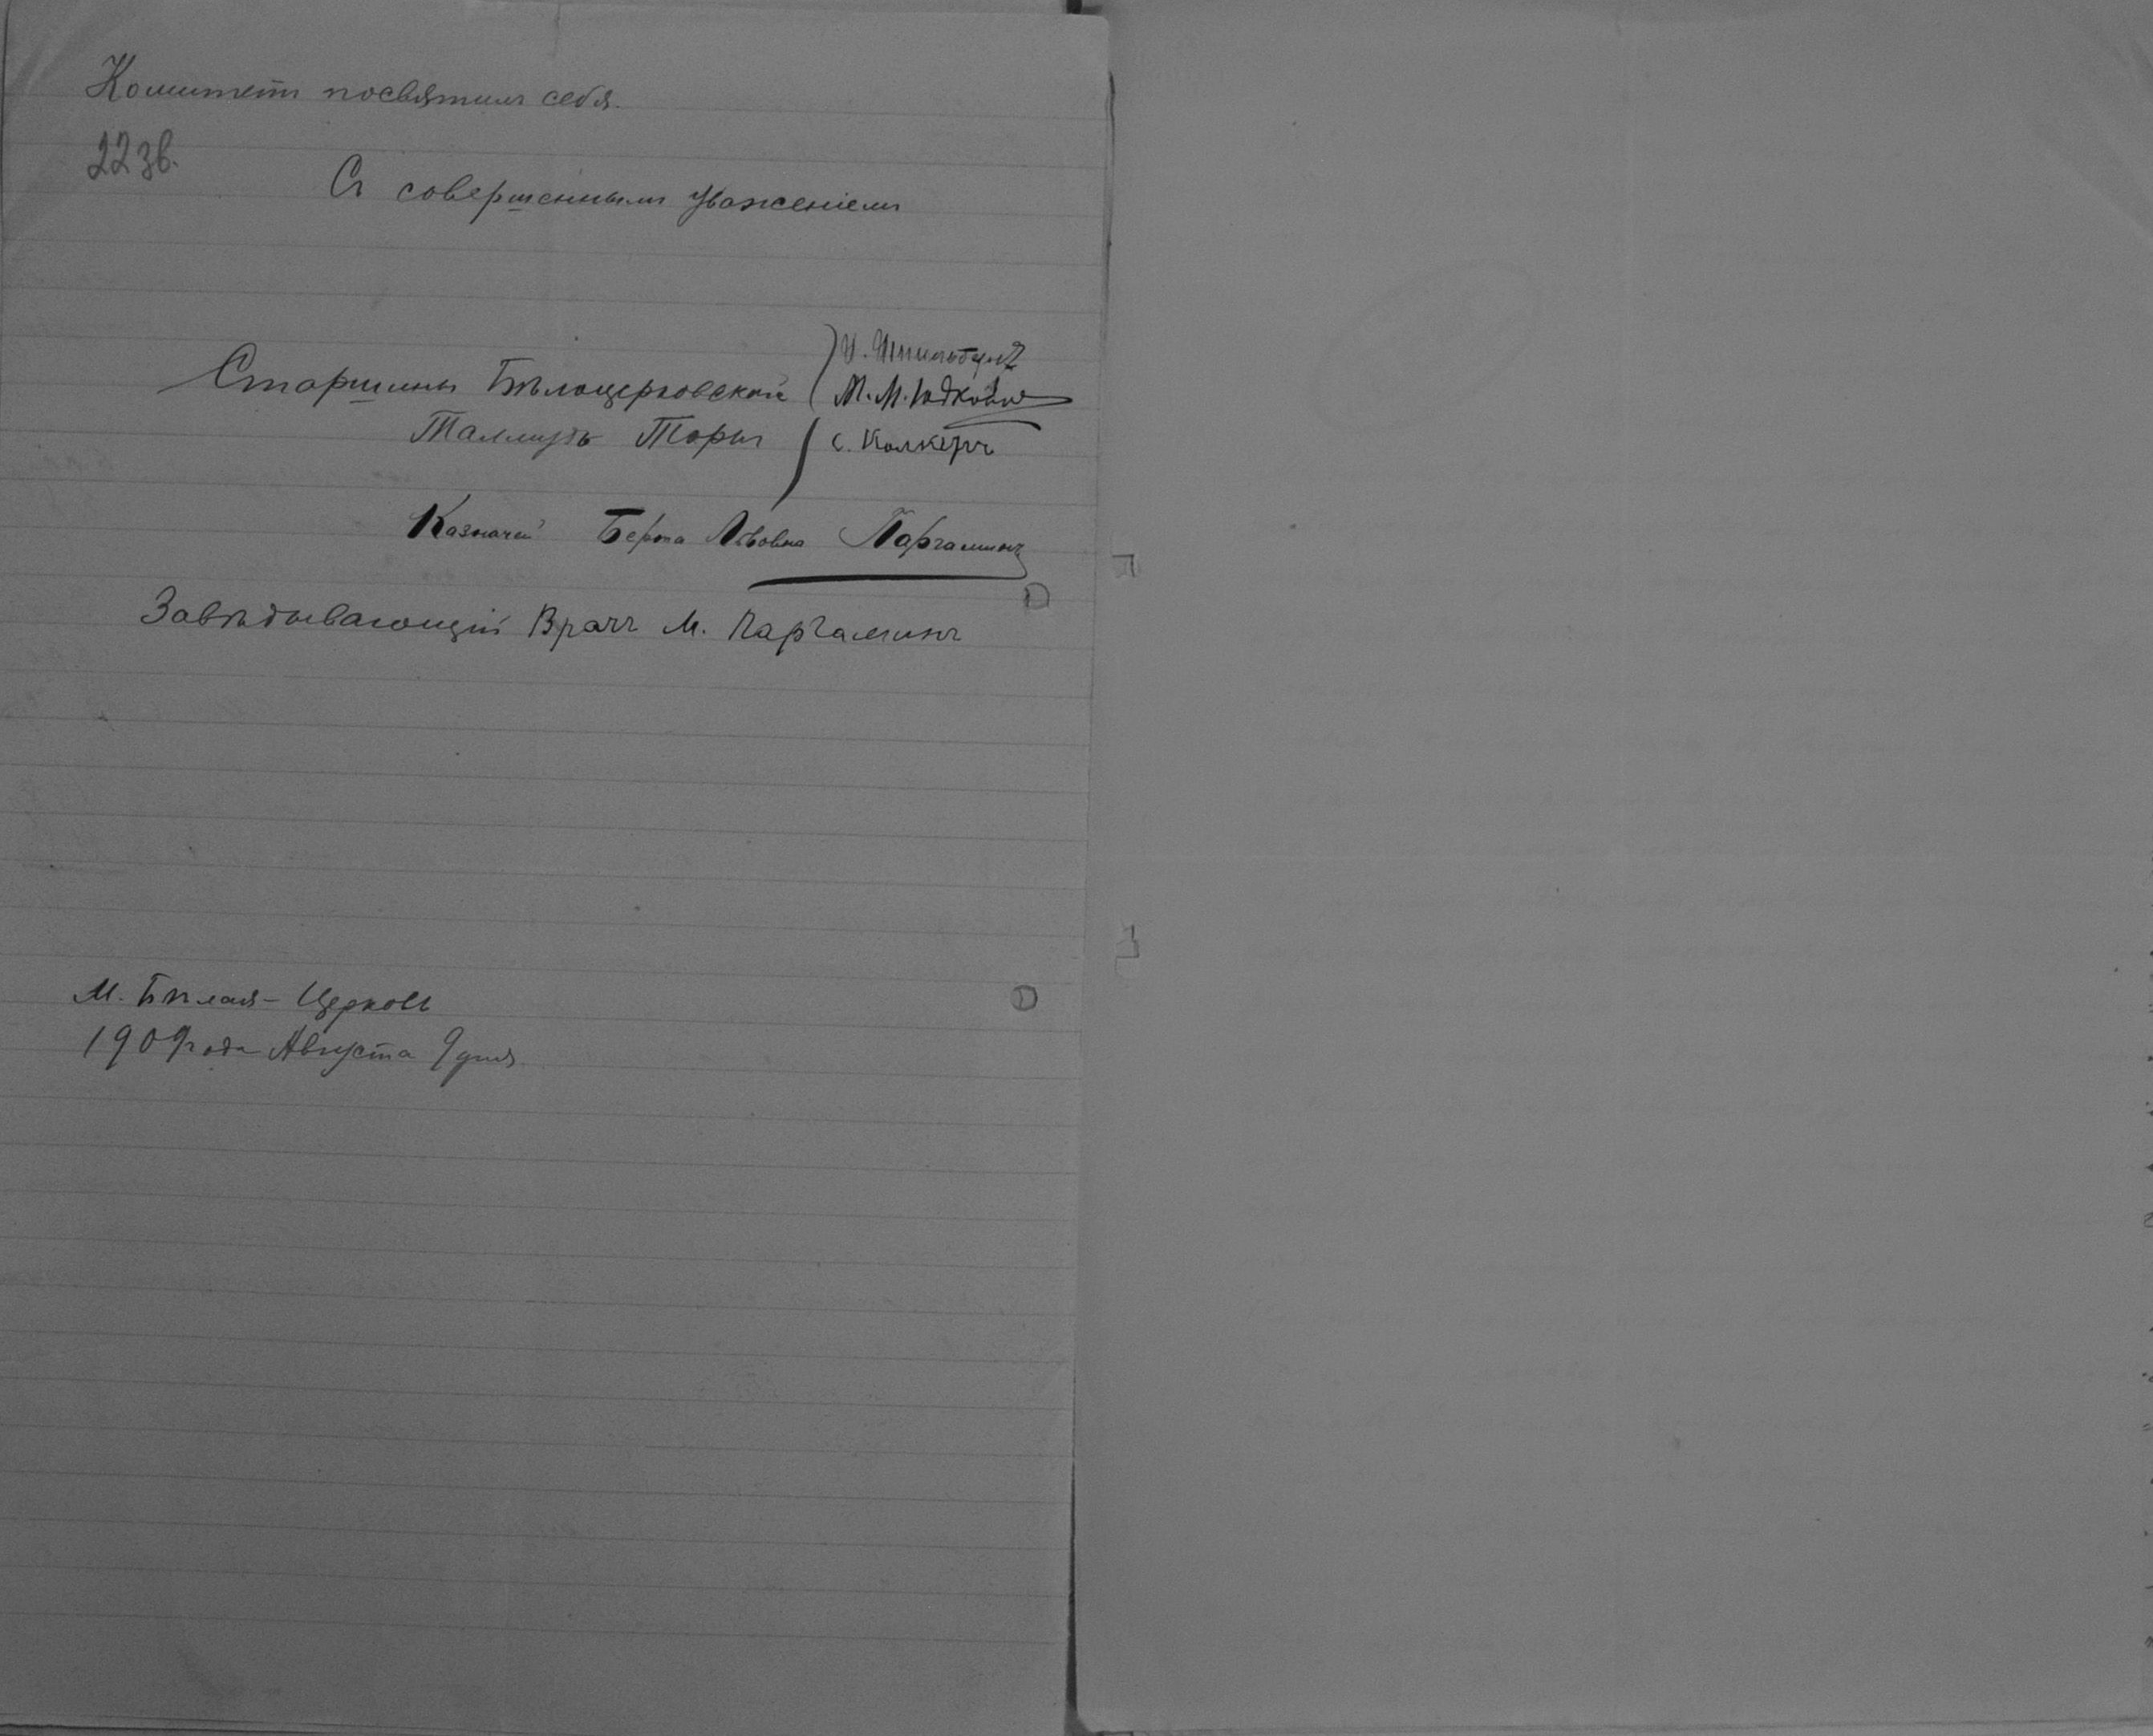 Комитетъ посвятилъ себя.
223в.
Съ совершеннымъ уваженіемъ
И. Шпильбергъ
Старшины Бѣлоцерковской М. М. Юдковъ
Талмудъ Торы С. Колкеръ
Казначей Берта Львовна Паргаминъ
Завѣдывающій Врачъ М. Паргаминъ
М. Бѣлая-Церковь
1909 года Августа 9 дня.